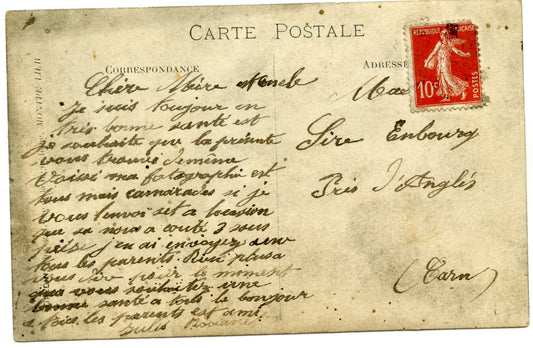 CARTE POSTALE
CORRESPONDANCE
ADRESSE
RÉPUBLIQUE FRANÇAISE
10c
POSTES
Chère Mère Oncle
Je suis toujour en
très bonne santé est
je souhaite que la présente
vous trouve de même
Voisi ma fotographi est
tous mais camarades si je
vous l'envoi set a locasion
que sa nous a couté 3 sous
pièse j'en ai envoyez a
tous les parents. Rien plus a
vous dire pour le moment
que vous souhaitez une
bonne santé a tous le bonjour
a tous les parents est ami
Jules
Sire Enbourg
Près d'Anglés
(Tarn)